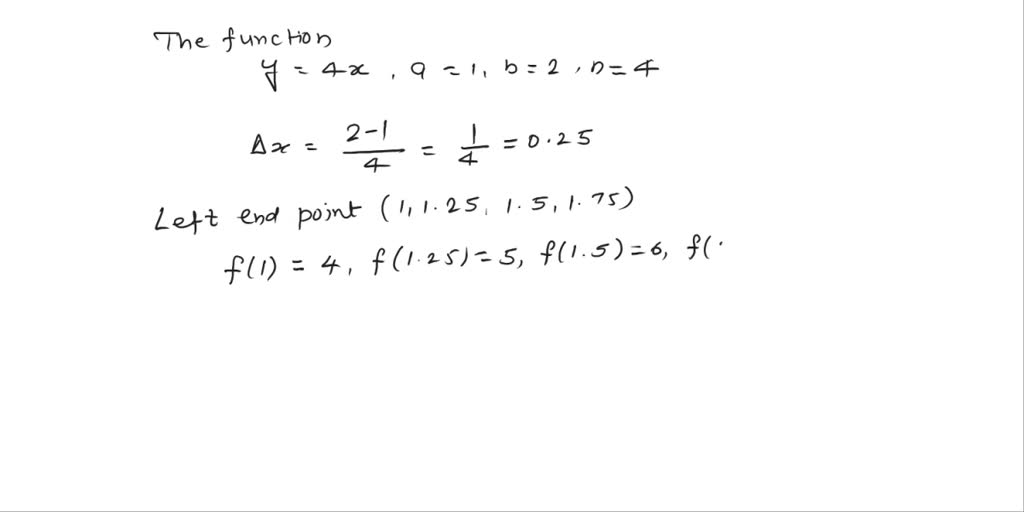 The function
y = 4x , a = 1, b = 2 , n = 4
Δx = 2-1/4 = 1/4 = 0.25
Left end point (1, 1.25, 1.5, 1.75)
f(1) = 4, f(1.25) = 5, f(1.5) = 6, f(.